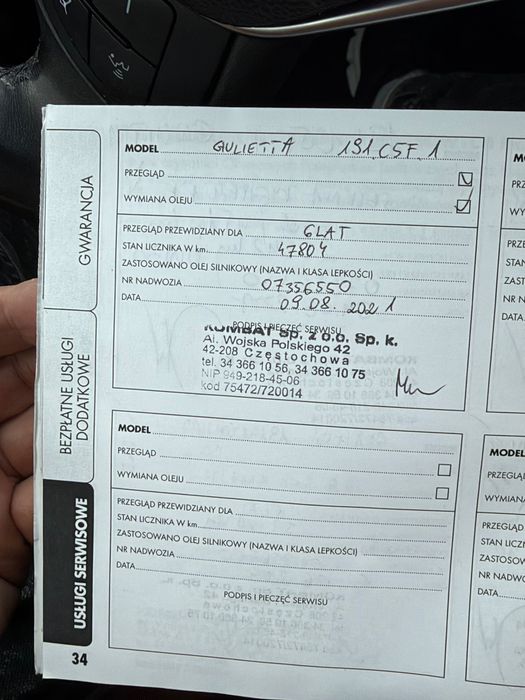 GWARANCJA
BEZPŁATNE USŁUGI
DODATKOWE
USŁUGI SERWISOWE
MODEL GIULIETTA 191.C5F.1
PRZEGLĄD
WYMIANA OLEJU
PRZEGLĄD PRZEWIDZIANY DLA 6LAT
STAN LICZNIKA W km 47804
ZASTOSOWANO OLEJ SILNIKOWY (NAZWA I KLASA LEPKOŚCI)
NR NADWOZIA 07356550
DATA 09.08.2021
PODPIS I PIECZĘĆ SERWISU
KOMBAT Sp. z o.o. Sp. k.
Al. Wojska Polskiego 42
42-208 Częstochowa
tel. 34 366 10 56, 34 366 10 75
NIP 949-218-45-06
kod 75472/720014
MODEL
PRZEGLĄD
WYMIANA OLEJU
PRZEGLĄD PRZEWIDZIANY DLA
STAN LICZNIKA W km
ZASTOSOWANO OLEJ SILNIKOWY (NAZWA I KLASA LEPKOŚCI)
NR NADWOZIA
DATA
PODPIS I PIECZĘĆ SERWISU
34
PRZE
WY
PRZE
STAN
ZAST
NR N
DATA
MODEL
PRZEGLĄ
WYMIAN
PRZEGLĄD
STAN LICZN
ZASTOSOW
NR NADWO
DATA